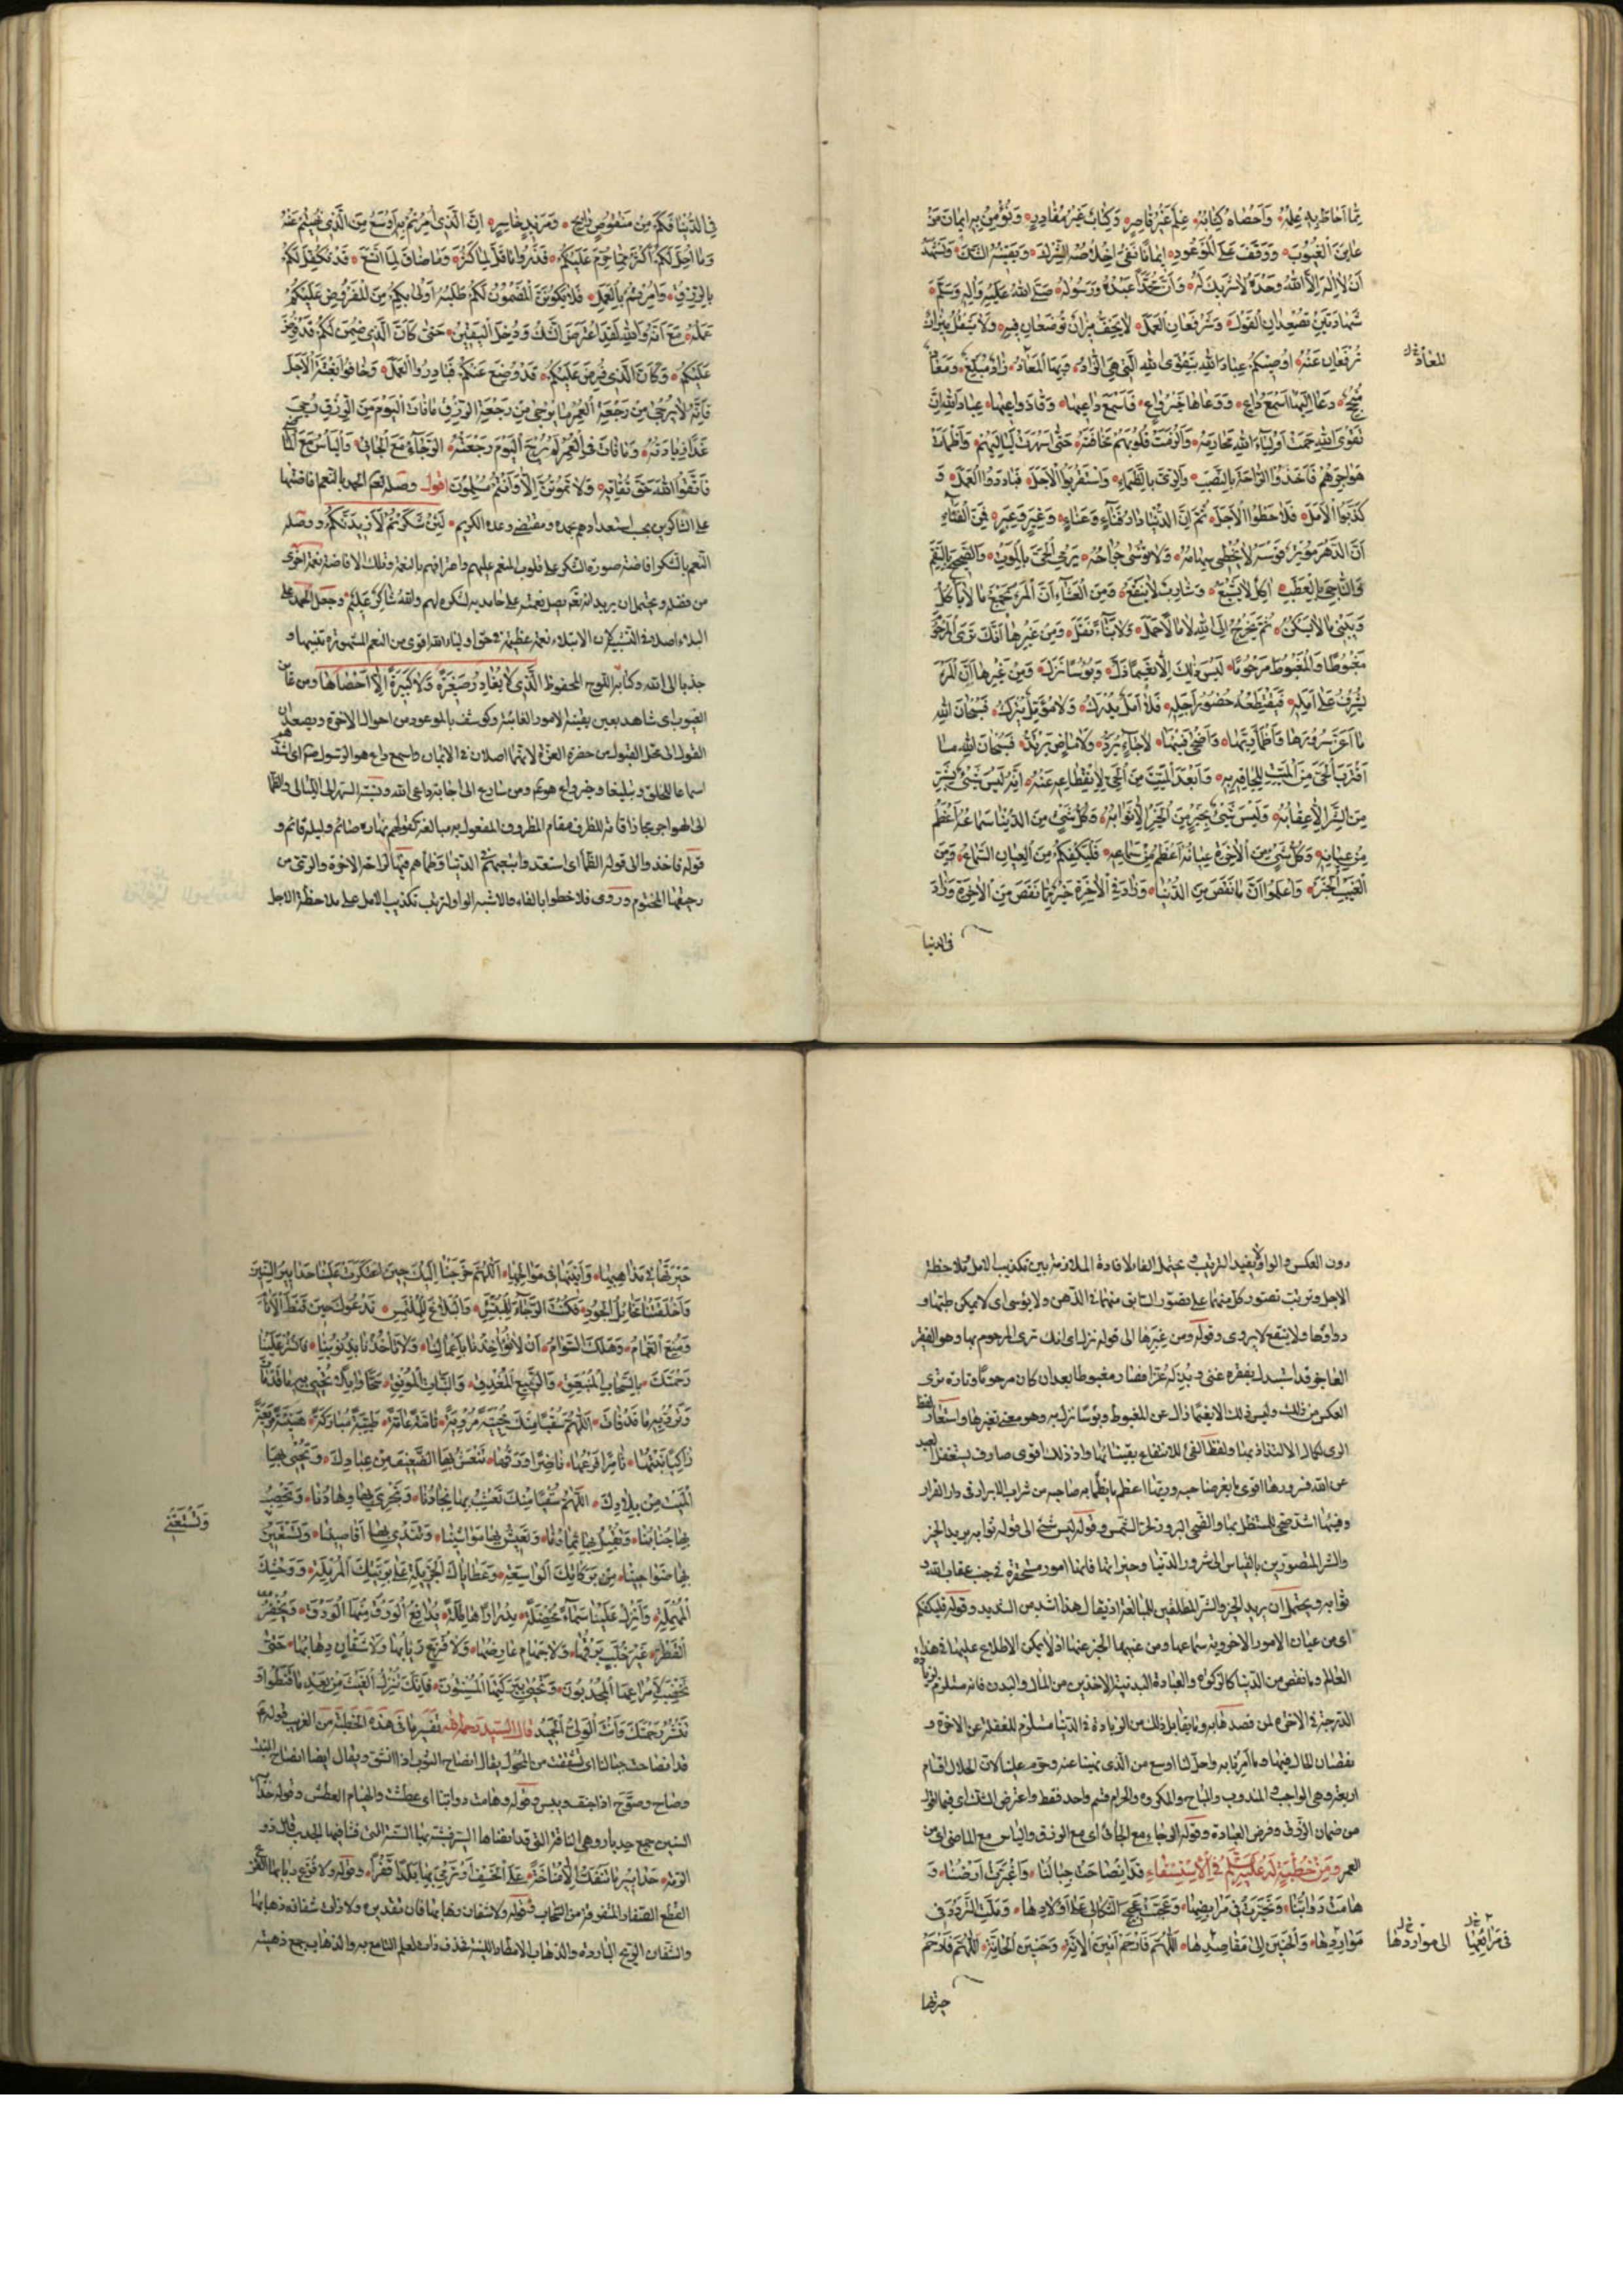 مِمَّا اَحَاطَ بِهِ عِلْمُهُ وَاَحْصَاهُ كِتَابُهُ عِلْمٌ غَيْرُ قَاصِرٍ وَكِتَابٌ غَيْرُ مُغَادِرٍ وَنُؤْمِنُ بِهِ اِيمَانَ مَنْ
عَايَنَ الْغُيُوبَ وَوَقَفَ عَلَى الْمَوْعُودِ اِيمَانًا نَفَى اِخْلَاصُهُ الشِّرْكَ وَيَقِينُهُ الشَّكَّ وَنَشْهَدُ
اَنْ لَا اِلٰهَ اِلَّا اللهُ وَحْدَهُ لَا شَرِيكَ لَهُ وَاَنَّ مُحَمَّدًا عَبْدُهُ وَرَسُولُهُ صَلَّى اللهُ عَلَيْهِ وَاٰلِهِ وَسَلَّمَ
شَهَادَتَيْنِ تُصْعِدَانِ الْقَوْلَ وَتَرْفَعَانِ الْعَمَلَ لَا يَخِفُّ مِيزَانٌ تُوضَعَانِ فِيهِ وَلَا يَثْقُلُ مِيزَانٌ
تُرْفَعَانِ عَنْهُ اُوصِيكُمْ عِبَادَ اللهِ بِتَقْوَى اللهِ الَّتِي هِيَ الزَّادُ وَبِهَا الْمَعَادُ زَادٌ مُبَلِّغٌ وَمَعَادٌ
المعاذ
مُنْجِحٌ دَعَا اِلَيْهَا اَسْمَعُ دَاعٍ وَوَعَاهَا خَيْرُ وَاعٍ فَاَسْمَعَ دَاعِيهَا وَفَازَ وَاعِيهَا عِبَادَ اللهِ اِنَّ
تَقْوَى اللهِ حَمَتْ اَوْلِيَاءَ اللهِ مَحَارِمَهُ وَاَلْزَمَتْ قُلُوبَهُمْ مَخَافَتَهُ حَتَّى اَسْهَرَتْ لَيَالِيَهُمْ وَاَظْمَأَتْ
هَوَاجِرَهُمْ فَاَخَذُوا الرَّاحَةَ بِالنَّصَبِ وَالرِّيَّ بِالظَّمَاءِ وَاسْتَقْرَبُوا الْاَجَلَ فَبَادَرُوا الْعَمَلَ وَ
كَذَّبُوا الْاَمَلَ فَلَاحَظُوا الْاَجَلَ ثُمَّ اِنَّ الدُّنْيَا دَارُ فَنَاءٍ وَعَنَاءٍ وَغِيَرٍ وَعِبَرٍ فَمِنَ الْفَنَاءِ
اَنَّ الدَّهْرَ مُوتِرٌ قَوْسَهُ لَا تُخْطِي سِهَامُهُ وَلَا تُوسَى جِرَاحُهُ يَرْمِي الْحَيَّ بِالْمَوْتِ وَالصَّحِيحَ بِالسَّقَمِ
وَالنَّاجِيَ بِالْعَطَبِ اٰكِلٌ لَا يَشْبَعُ وَشَارِبٌ لَا يَنْقَعُ وَمِنَ الْعَنَاءِ اَنَّ الْمَرْءَ يَجْمَعُ مَا لَا يَأْكُلُ
وَيَبْنِي مَا لَا يَسْكُنُ ثُمَّ يَخْرُجُ اِلَى اللهِ لَا مَالًا حَمَلَ وَلَا بِنَاءً نَقَلَ وَمِنْ غِيَرِهَا اَنَّكَ تَرَى الْمَرْحُومَ
مَغْبُوطًا وَالْمَغْبُوطَ مَرْحُومًا لَيْسَ ذٰلِكَ اِلَّا نَعِيمًا زَلَّ وَبُؤْسًا نَزَلَ وَمِنْ عِبَرِهَا اَنَّ الْمَرْءَ
يُشْرِفُ عَلَى اَمَلِهِ فَيَقْتَطِعُهُ حُضُورُ اَجَلِهِ فَلَا اَمَلٌ يُدْرَكُ وَلَا مُؤَمَّلٌ يُتْرَكُ فَسُبْحَانَ اللهِ
مَا اَعَزَّ سُرُورَهَا وَاَظْمَأَ رِيَّهَا وَاَضْحَى فَيْئَهَا لَا جَاءٍ يُرَدُّ وَلَا مَاضٍ يَرْتَدُّ فَسُبْحَانَ اللهِ مَا
اَقْرَبَ الْحَيَّ مِنَ الْمَيِّتِ لِلِحَاقِهِ بِهِ وَاَبْعَدَ الْمَيِّتَ مِنَ الْحَيِّ لِانْقِطَاعِهِ عَنْهُ اِنَّهُ لَيْسَ شَيْءٌ بِشَرٍّ
مِنَ الشَّرِّ اِلَّا عِقَابُهُ وَلَيْسَ شَيْءٌ بِخَيْرٍ مِنَ الْخَيْرِ اِلَّا ثَوَابُهُ وَكُلُّ شَيْءٍ مِنَ الدُّنْيَا سَمَاعُهُ اَعْظَمُ
مِنْ عِيَانِهِ وَكُلُّ شَيْءٍ مِنَ الْاٰخِرَةِ عِيَانُهُ اَعْظَمُ مِنْ سَمَاعِهِ فَلْيَكْفِكُمْ مِنَ الْعِيَانِ السَّمَاعُ وَمِنَ
الْغَيْبِ الْخَبَرُ وَاعْلَمُوا اَنَّ مَا نَقَصَ مِنَ الدُّنْيَا وَزَادَ فِي الْاٰخِرَةِ خَيْرٌ مِمَّا نَقَصَ مِنَ الْاٰخِرَةِ وَزَادَ
فى الدنيا
فِي الدُّنْيَا فَكَمْ مِنْ مَنْقُوصٍ رَابِحٍ وَمَزِيدٍ خَاسِرٍ اِنَّ الَّذِي اُمِرْتُمْ بِهِ اَوْسَعُ مِنَ الَّذِي نُهِيتُمْ عَنْهُ
وَمَا اُحِلَّ لَكُمْ اَكْثَرُ مِمَّا حُرِّمَ عَلَيْكُمْ فَذَرُوا مَا قَلَّ لِمَا كَثُرَ وَمَا ضَاقَ لِمَا اتَّسَعَ قَدْ تُكُفِّلَ لَكُمْ
بِالرِّزْقِ وَاُمِرْتُمْ بِالْعَمَلِ فَلَا يَكُونَنَّ الْمَضْمُونُ لَكُمْ طَلَبُهُ اَوْلَى بِكُمْ مِنَ الْمَفْرُوضِ عَلَيْكُمْ
عَمَلُهُ مَعَ اَنَّهُ وَاللهِ لَقَدِ اعْتَرَضَ الشَّكُّ وَدَخِلَ الْيَقِينُ حَتَّى كَاَنَّ الَّذِي ضُمِنَ لَكُمْ قَدْ فُرِضَ
عَلَيْكُمْ وَكَاَنَّ الَّذِي فُرِضَ عَلَيْكُمْ قَدْ وُضِعَ عَنْكُمْ فَبَادِرُوا الْعَمَلَ وَخَافُوا بَغْتَةَ الْاَجَلِ
فَاِنَّهُ لَا يُرْجَى مِنْ رَجْعَةِ الْعُمْرِ مَا يُرْجَى مِنْ رَجْعَةِ الرِّزْقِ مَا فَاتَ الْيَوْمَ مِنَ الرِّزْقِ رُجِيَ
غَدًا زِيَادَتُهُ وَمَا فَاتَ اَمْسِ مِنَ الْعُمْرِ لَمْ يُرْجَ الْيَوْمَ رَجْعَتُهُ الرَّجَاءُ مَعَ الْجَائِي وَالْيَأْسُ مَعَ الْمَاضِي
فَاتَّقُوا اللهَ حَقَّ تُقَاتِهِ وَلَا تَمُوتُنَّ اِلَّا وَاَنْتُمْ مُسْلِمُونَ اقول وصله تعالى الحمد بالنعم افاضتها
على الشاكرين بحسب استعدادهم بحمده ومقتضى وعده الكريم لَئِنْ شَكَرْتُمْ لَاَزِيدَنَّكُمْ ووصله
النعم بالشكر افاضته صورة الشكر على قلوب المنعم عليهم واعترافهم بالنعمة وتلك الافاضة نعمة اخرى
من فضله ويحتمل ان يريد انه تعالى يصل نعمته على حامديه بشكره لهم وَاللهُ شَاكِرٌ عَلِيمٌ وجعل الحمد على
البلاء اصلا فى التشبيه لان الابتلاء نعمة عظيمة فى حق اولياء الله اقوى من النعم المشهورة تنبيها و
جذبا الى الله وكتابه اللوح المحفوظ الَّذِي لَا يُغَادِرُ صَغِيرَةً وَلَا كَبِيرَةً اِلَّا اَحْصَاهَا ومن عاين
الغيوب اى شاهد بعين يقينه الامور الغائبة وكوشف بالموعود من احوال الاخرة ويصعدان
القول الى محل القبول من حضرة العزة لانهما اصلان فى الايمان واسمع داع هو الرسول صم اى اشد
اسماعا للخلق وتبليغا وخير واع هو عم ومن سارع الى اجابة داعى الله ونسبة السهر الى الليالى والظما
الى الهواجر مجاز اقامة للظرف مقام المظروف المفعول به مبالغة كقولهم نهاره صائم وليله قائم و
قوله فاخذوا الى قوله الظما اى استعدوا بتعبهم فى الدنيا وظماهم فيها لراحة الاخرة والرى من
رحيقها المختوم وروى فلاحظوا بالفاء والاشبه الواو لترتب تكذيب الامل على ملاحظة الاجل
دون العكس والواو لا يفيد الترتيب ويحتمل الفاء لافادة الملازمة بين تكذيب الامل وملاحظة
الاجل وترتب تصور كل منهما على تصور السابق منهما فى الذهن ولا يوسى اى لا يمكن طبها و
دواؤها ولا ينقع لا يروى وقوله ومن غيرها الى قوله نزل اى انك ترى المرحوم بها وهو الفقير
العاجز قد استبدل بفقره غنى وبذله عزا فصار مغبوطا بعد ان كان مرحوما وتارة ترى
العكس من ذلك وليس ذلك الا نعيما زال عن المغبوط وبؤسا نزل به وهو معنى تغيرها واستعار لفظ
الرى لكمال الالتذاذ بها ولفظ الفئ للانتفاع بقيناتها واذ ذلك اقوى صارف يستغفل العبد
عن الله فسرورها اقوى ما يغر صاحبه وريها اعظم ما يظما به صاحبه من شراب الابرار فى دار القرار
وفيئها اشد ضحى للمستظل بها والضحى البروز لحر الشمس وقوله ليس شئ الى قوله ثوابه يريد الخير
والشر المتصورين بالقياس الى شرور الدنيا وخيراتها فانها امور مستحقرة فى جنب عقاب الله و
ثوابه ويحتمل ان يريد الخير والشر المطلقين للمبالغة اذ يقال هذا اشد من الشديد وقوله فليكفكم
اى من عيان الامور الاخروية سماعها ومن غيبها الخبر عنها اذ لا يمكن الاطلاع عليها فى هذا
العالم وما نقص من الدنيا كالزكوة والعبادة البدنية الاخذين من المال والبدن فانه مستلزم لزيادة
الدرجة فى الاخرة لمن قصدها به وما يقابل ذلك من الزيادة فى الدنيا مستلزم للغفلة عن الاخرة و
نقصان المال فيها وما اُمِرنا به واحل لنا اوسع من الذى نهينا عنه وحرم علينا لان الحلال اقسام
اربعة وهى الواجب والمندوب والمباح والمكروه والحرام قسم واحد فقط واعترض الشك اى فيما اقوله
من ضمان الرزق وفرض العبادة وقوله الرجاء مع الجائى اى مع الرزق والياس مع الماضى اى من
العمر وَمِنْ خُطْبَةٍ لَهُ عَلَيْهِ السَّلَمُ فِي الْاِسْتِسْقَاءِ قَدِ انْصَاحَتْ جِبَالُنَا وَاغْبَرَّتْ اَرْضُنَا وَ
هَامَتْ دَوَابُّنَا وَتَحَيَّرَتْ فِي مَرَابِضِهَا وَعَجَّتْ عَجِيجَ الثَّكَالَى عَلَى اَوْلَادِهَا وَمَلَّتِ التَّرَدُّدَ فِي
مَوَارِدِهَا وَالْحَنِينَ اِلَى مَقَاصِدِهَا اَللّٰهُمَّ فَارْحَمْ اَنِينَ الْاٰنَّةِ وَحَنِينَ الْحَانَّةِ اَللّٰهُمَّ فَارْحَمْ
فى مَرَاتِعِهَا
الى مواردها
حيرتها
حَيْرَتَهَا فِي مَذَاهِبِهَا وَاَنِينَهَا فِي مَوَالِجِهَا اَللّٰهُمَّ خَرَجْنَا اِلَيْكَ حِينَ اعْتَكَرَتْ عَلَيْنَا حَدَابِيرُ السِّنِينَ
وَاَخْلَفَتْنَا مَخَايِلُ الْجُودِ فَكُنْتَ الرَّجَاءَ لِلْمُبْتَئِسِ وَالْبَلَاغَ لِلْمُلْتَمِسِ نَدْعُوكَ حِينَ قَنَطَ الْاَنَامُ
وَمُنِعَ الْغَمَامُ وَهَلَكَ السَّوَامُ اَنْ لَا تُؤَاخِذَنَا بِاَعْمَالِنَا وَلَا تَأْخُذَنَا بِذُنُوبِنَا وَانْشُرْ عَلَيْنَا
رَحْمَتَكَ بِالسَّحَابِ الْمُنْبَعِقِ وَالرَّبِيعِ الْمُغْدِقِ وَالنَّبَاتِ الْمُونِقِ سَحًّا وَابِلًا تُحْيِي بِهِ مَا قَدْ مَاتَ
وَتَرُدُّ بِهِ مَا قَدْ فَاتَ اَللّٰهُمَّ سُقْيَا مِنْكَ مُحْيِيَةً مُرْوِيَةً تَامَّةً عَامَّةً طَيِّبَةً مُبَارَكَةً هَنِيئَةً مَرِيعَةً
زَاكِيًا نَبْتُهَا ثَامِرًا فَرْعُهَا نَاضِرًا وَرَقُهَا تَنْعَشُ بِهَا الضَّعِيفَ مِنْ عِبَادِكَ وَتُحْيِي بِهَا
الْمَيِّتَ مِنْ بِلَادِكَ اَللّٰهُمَّ سُقْيَا مِنْكَ تُعْشِبُ بِهَا نِجَادُنَا وَتَجْرِي بِهَا وِهَادُنَا وَتُخْصِبُ
بِهَا جَنَابُنَا وَتُقْبِلُ بِهَا ثِمَارُنَا وَتَعِيشُ بِهَا مَوَاشِينَا وَتَنْدَى بِهَا اَقَاصِينَا وَتَسْتَعِينُ
وَتَسْتَغْنِي
بِهَا ضَوَاحِينَا مِنْ بَرَكَاتِكَ الْوَاسِعَةِ وَعَطَايَاكَ الْجَزِيلَةِ عَلَى بَرِيَّتِكَ الْمُرْمِلَةِ وَوَحْشِكَ
الْمُهْمَلَةِ وَاَنْزِلْ عَلَيْنَا سَمَاءً مُخْضِلَةً مِدْرَارًا هَاطِلَةً يُدَافِعُ الْوَدْقُ مِنْهَا الْوَدْقَ وَيَحْفِزُ
الْقَطْرُ غَيْرَ خُلَّبٍ بَرْقُهَا وَلَا جَهَامٍ عَارِضُهَا وَلَا قَزَعٍ رَبَابُهَا وَلَا شَفَّانٍ ذِهَابُهَا حَتَّى
يُخْصِبَ لِاِمْرَاعِهَا الْمُجْدِبُونَ وَيَحْيَى بِبَرَكَتِهَا الْمُسْنِتُونَ فَاِنَّكَ تُنْزِلُ الْغَيْثَ مِنْ بَعْدِ مَا قَنَطُوا وَ
تَنْشُرُ رَحْمَتَكَ وَاَنْتَ الْوَلِيُّ الْحَمِيدُ قال السيد رحمه الله تفسير ما فى هذه الخطبة من الغريب قوله عم
قد انصاحت جبالنا اى تشققت من المحول يقال انصاح الثوب اذا انشق ويقال ايضا انصاح النبت
وصاح وصوح اذا جف ويبس وقوله وهامت دوابنا اى عطشت والهيام العطش وقوله حدابير
السنين جمع حدبار وهى الناقة التى قد انضاها السير فشبه بها السنة التى فشا فيها الجدب قال ذو
الرمة حَدَابِيرُ مَا تَنْفَكُّ اِلَّا مُنَاخَةً عَلَى الْخَسْفِ اَوْ تَرْمِي بِهَا بَلَدًا قَفْرًا وقوله ولا قزع ربابها القزع
القطع الصغار المتفرقة من السحاب وقوله ولا شفان ذهابها فان تقديره ولا ذات شفان ذهابها
والشفان الريح الباردة والذهاب الامطار اللينة فحذف ذات لعلم السامع به والذهاب جمع ذهبة